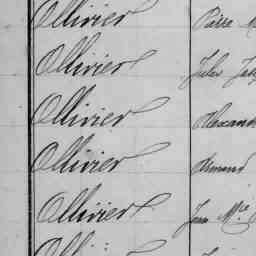 Ollivier Pierre
Ollivier Jules
Ollivier Alexand
Ollivier Armand
Ollivier Jean Mie